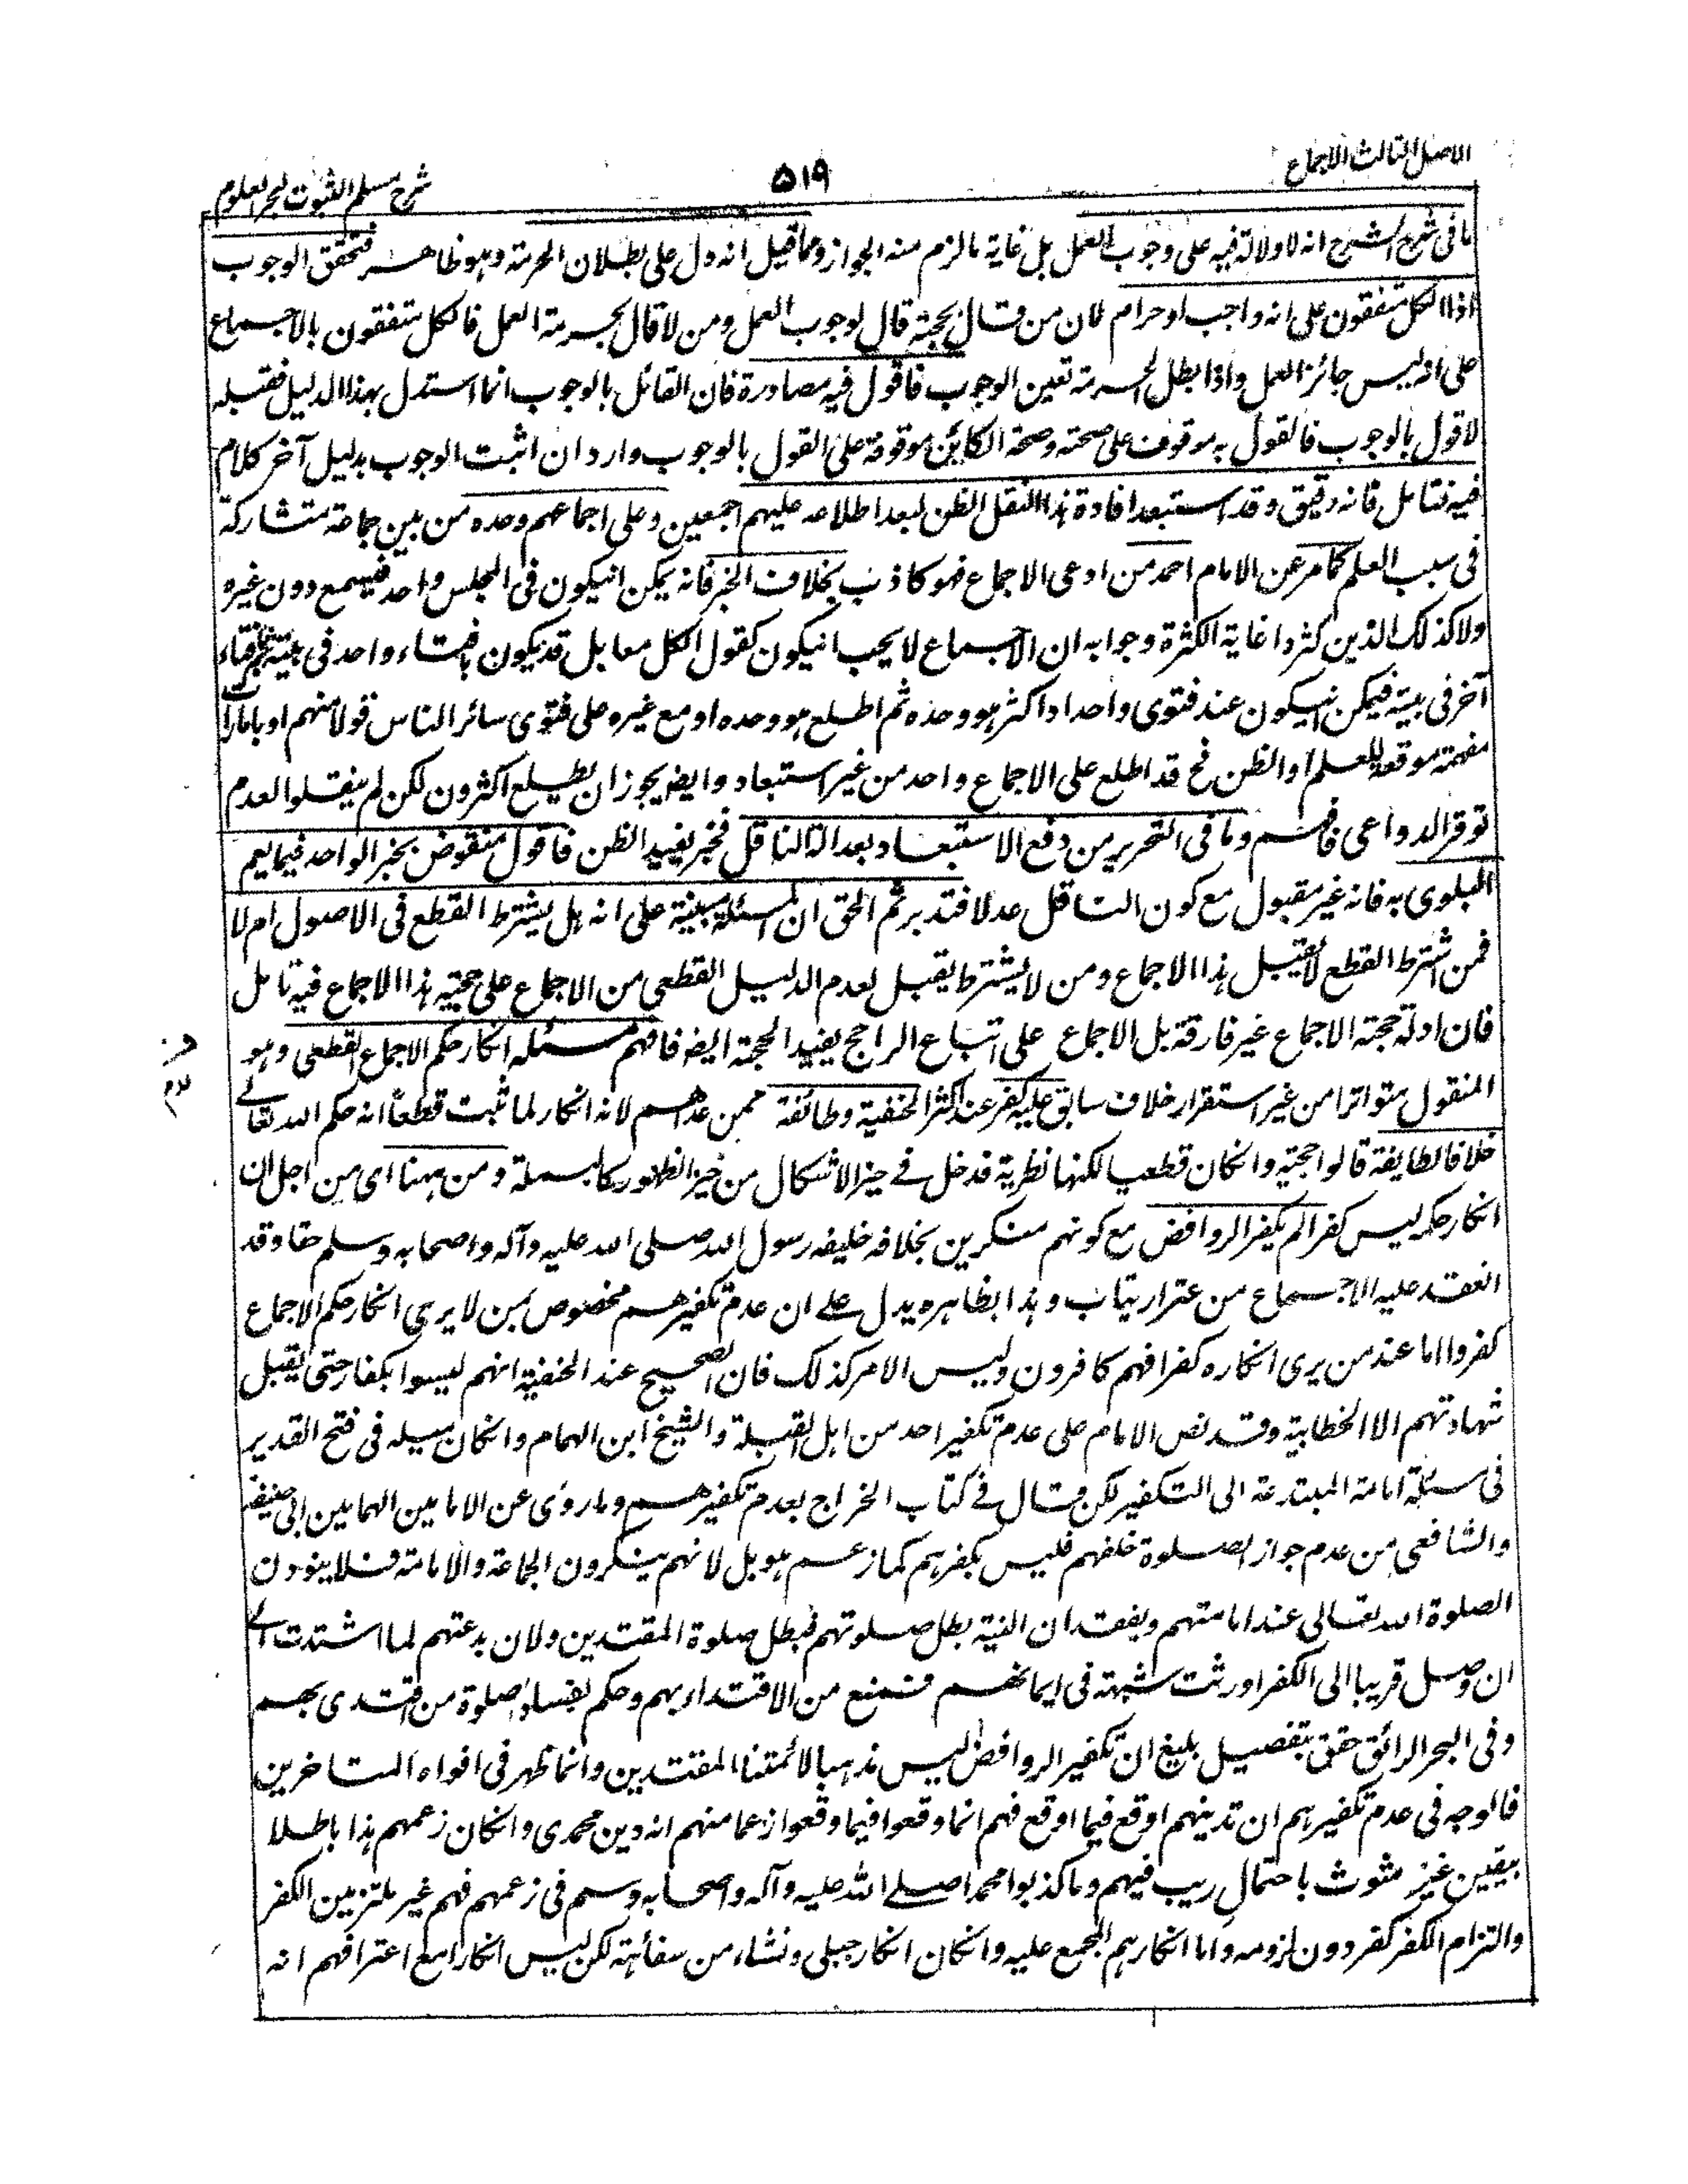 الاصل الثالث الاجماع
٥١٩
شرح مسلم الثبوت لبحر العلوم
ما فی شرح الشرح انه لا دلالة فیه علی وجوب العمل بل غایة ما لزم منه الجواز وما قیل انه دل علی بطلان الحرمة وهو ظاهر فتحقق الوجوب
اذا الکل متفقون علی انه واجب او حرام لان من قال بحجیته قال لوجوب العمل ومن لا قال بحرمة العمل فالکل متفقون بالاجماع
علی انه لیس جائز العمل واذا بطل الحرمة تعین الوجوب فاقول فیه مصادرة فان القائل بالوجوب انما استدل بهذا الدلیل فقبله
لا قول بالوجوب فالقول به موقوف علی صحته وصحة موقوفة علی القول بالوجوب وارد ان اثبت الوجوب بدلیل آخر کلام
فیه فتامل فانه دقیق وقد استبعد افادة هذا النقل الظن لبعد اطلاعه علیهم اجمعین وعلی اجماعهم وحده من بین جماعة متشارکة
فی سبب العلم کما مر عن الامام احمد من ادعی الاجماع فهو کاذب بخلاف الخبر فانه یمکن انیکون فی المجلس واحد فیسمع دون غیره
ولا کذلک الذین کثروا غایة الکثرة وجوابه ان الاجماع لا یجب انیکون کقول الکل معا بل قد یکون بافتاء واحد فی بیته ثم افتاء
آخر فی بیته فیمکن انیکون عند فتوی واحد او اکثر هو وحده ثم اطلع هو وحده او مع غیره علی فتوی سائر الناس قولا منهم او بامارات
مفهمة موقعة للعلم او الظن فح قد اطلع علی الاجماع واحد من غیر استبعاد وایض یجوز ان یطلع اکثرون لکن لم ینقلوا لعدم
توفر الدواعی فافهم وما فی التحریر من دفع الاستبعاد بعدالة الناقل فخبر یفید الظن فاقول منقوض بخبر الواحد فیما یعم
البلوی به فانه غیر مقبول مع کون الناقل عدلا فتدبر ثم الحق ان المسئلة مبینة علی انه هل یشترط القطع فی الاصول ام لا
فمن اشترط القطع لا یقبل هذا الاجماع ومن لا یشترط یقبل لعدم الدلیل القطعی من الاجماع علی حجیة هذا الاجماع فیه تامل
فان ادلة حجیة الاجماع غیر فارقة بل الاجماع علی اتباع الراجح یفید الحجیة ایض فافهم مسئله انکار حکم الاجماع القطعی وهو
المنقول متواترا من غیر استقرار خلاف سابق علیه کفر عند اکثر الحنفیة وطائفة ممن عداهم لانه انکار لما ثبت قطعا انه حکم الله تعالی
خلافا لطایفة قالوا حجیته وانکان قطعیا لکنها نظریة فدخل فی حیز الاشکال من حیز الظهور کالبسملة ومن ههنا ای من اجل ان
انکار حکمه لیس کفرا لم یکفر الروافض مع کونهم منکرین بخلافة خلیفة رسول الله صلی الله علیه وآله واصحابه وسلم حقا وقد
انعقد علیه الاجماع من غیر ارتیاب وهذا بظاهره یدل علی ان عدم تکفیرهم مخصوص بمن لا یری انکار حکم الاجماع
کفروا اما عند من یری انکاره کفرا فهم کافرون ولیس الامر کذلک فان الصحیح عند الحنفیة انهم لیسوا بکفار حتی یقبل
شهادتهم الا الخطابیة وقد نص الامام علی عدم تکفیر احد من اهل القبلة والشیخ ابن الهمام وانکان میله فی فتح القدیر
فی مسئلة امامة المبتدعة الی التکفیر لکن قال فی کتاب الخراج بعدم تکفیرهم وما روی عن الامامین الهمامین ابی حنیفة
والشافعی من عدم جواز الصلوة خلفهم فلیس بکفرهم کما زعم هو بل لانهم ینکرون الجماعة والامامة فلا ینوون
الصلوة لله تعالی عند امامتهم وبفقدان النیة بطل صلوتهم فبطل صلوة المقتدین ولان بدعتهم لما اشتدت الی
ان وصل قریبا الی الکفر اورثت شبهة فی ایمانهم فنمنع من الاقتداء بهم وحکم بفساد صلوة من اقتدی بهم
وفی البحر الرائق حقق بتفصیل بلیغ ان تکفیر الروافض لیس مذهبا لائمتنا المقتدین وانما ظهر فی افواه المتاخرین
فالوجه فی عدم تکفیرهم ان تدینهم اوقع فیما اوقع فهم انما وقعوا فیما وقعوا زعما منهم انه دین محمدی وانکان زعمهم هذا باطلا
بیقین غیر مثوث باحتمال ریب فیهم وما کذبوا محمدا صلے الله علیه وآله واصحابه وسلم فی زعمهم فهم غیر ملتزمین الکفر
والتزام الکفر کفر دون لزومه واما انکارهم المجمع علیه وانکان انکار جلی ونشاء من سفاهة لکن لیس انکارا مع اعترافهم انه